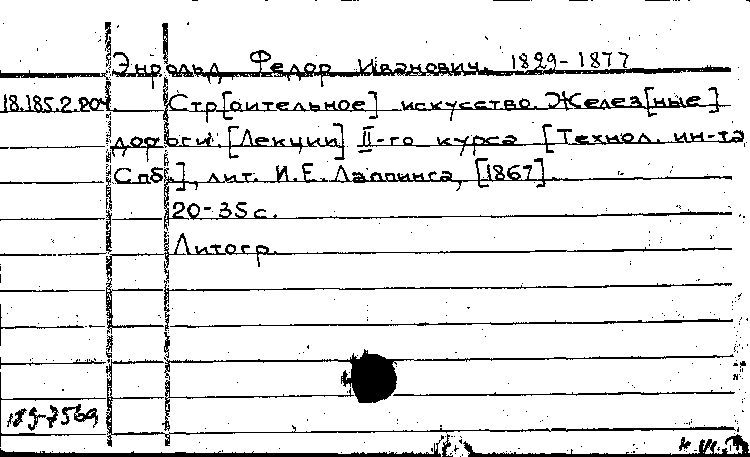 Энрольд, Федор Иванович. 1829-1877
18.185.2.204. Стр[оительное] искусство. Желез[ные]
дороги. [Лекции] II-го курса [Технол. ин-та
Спб.], лит. И.Е. Лаппинга, [1867].
20-35 с.
Литогр.
189-7569